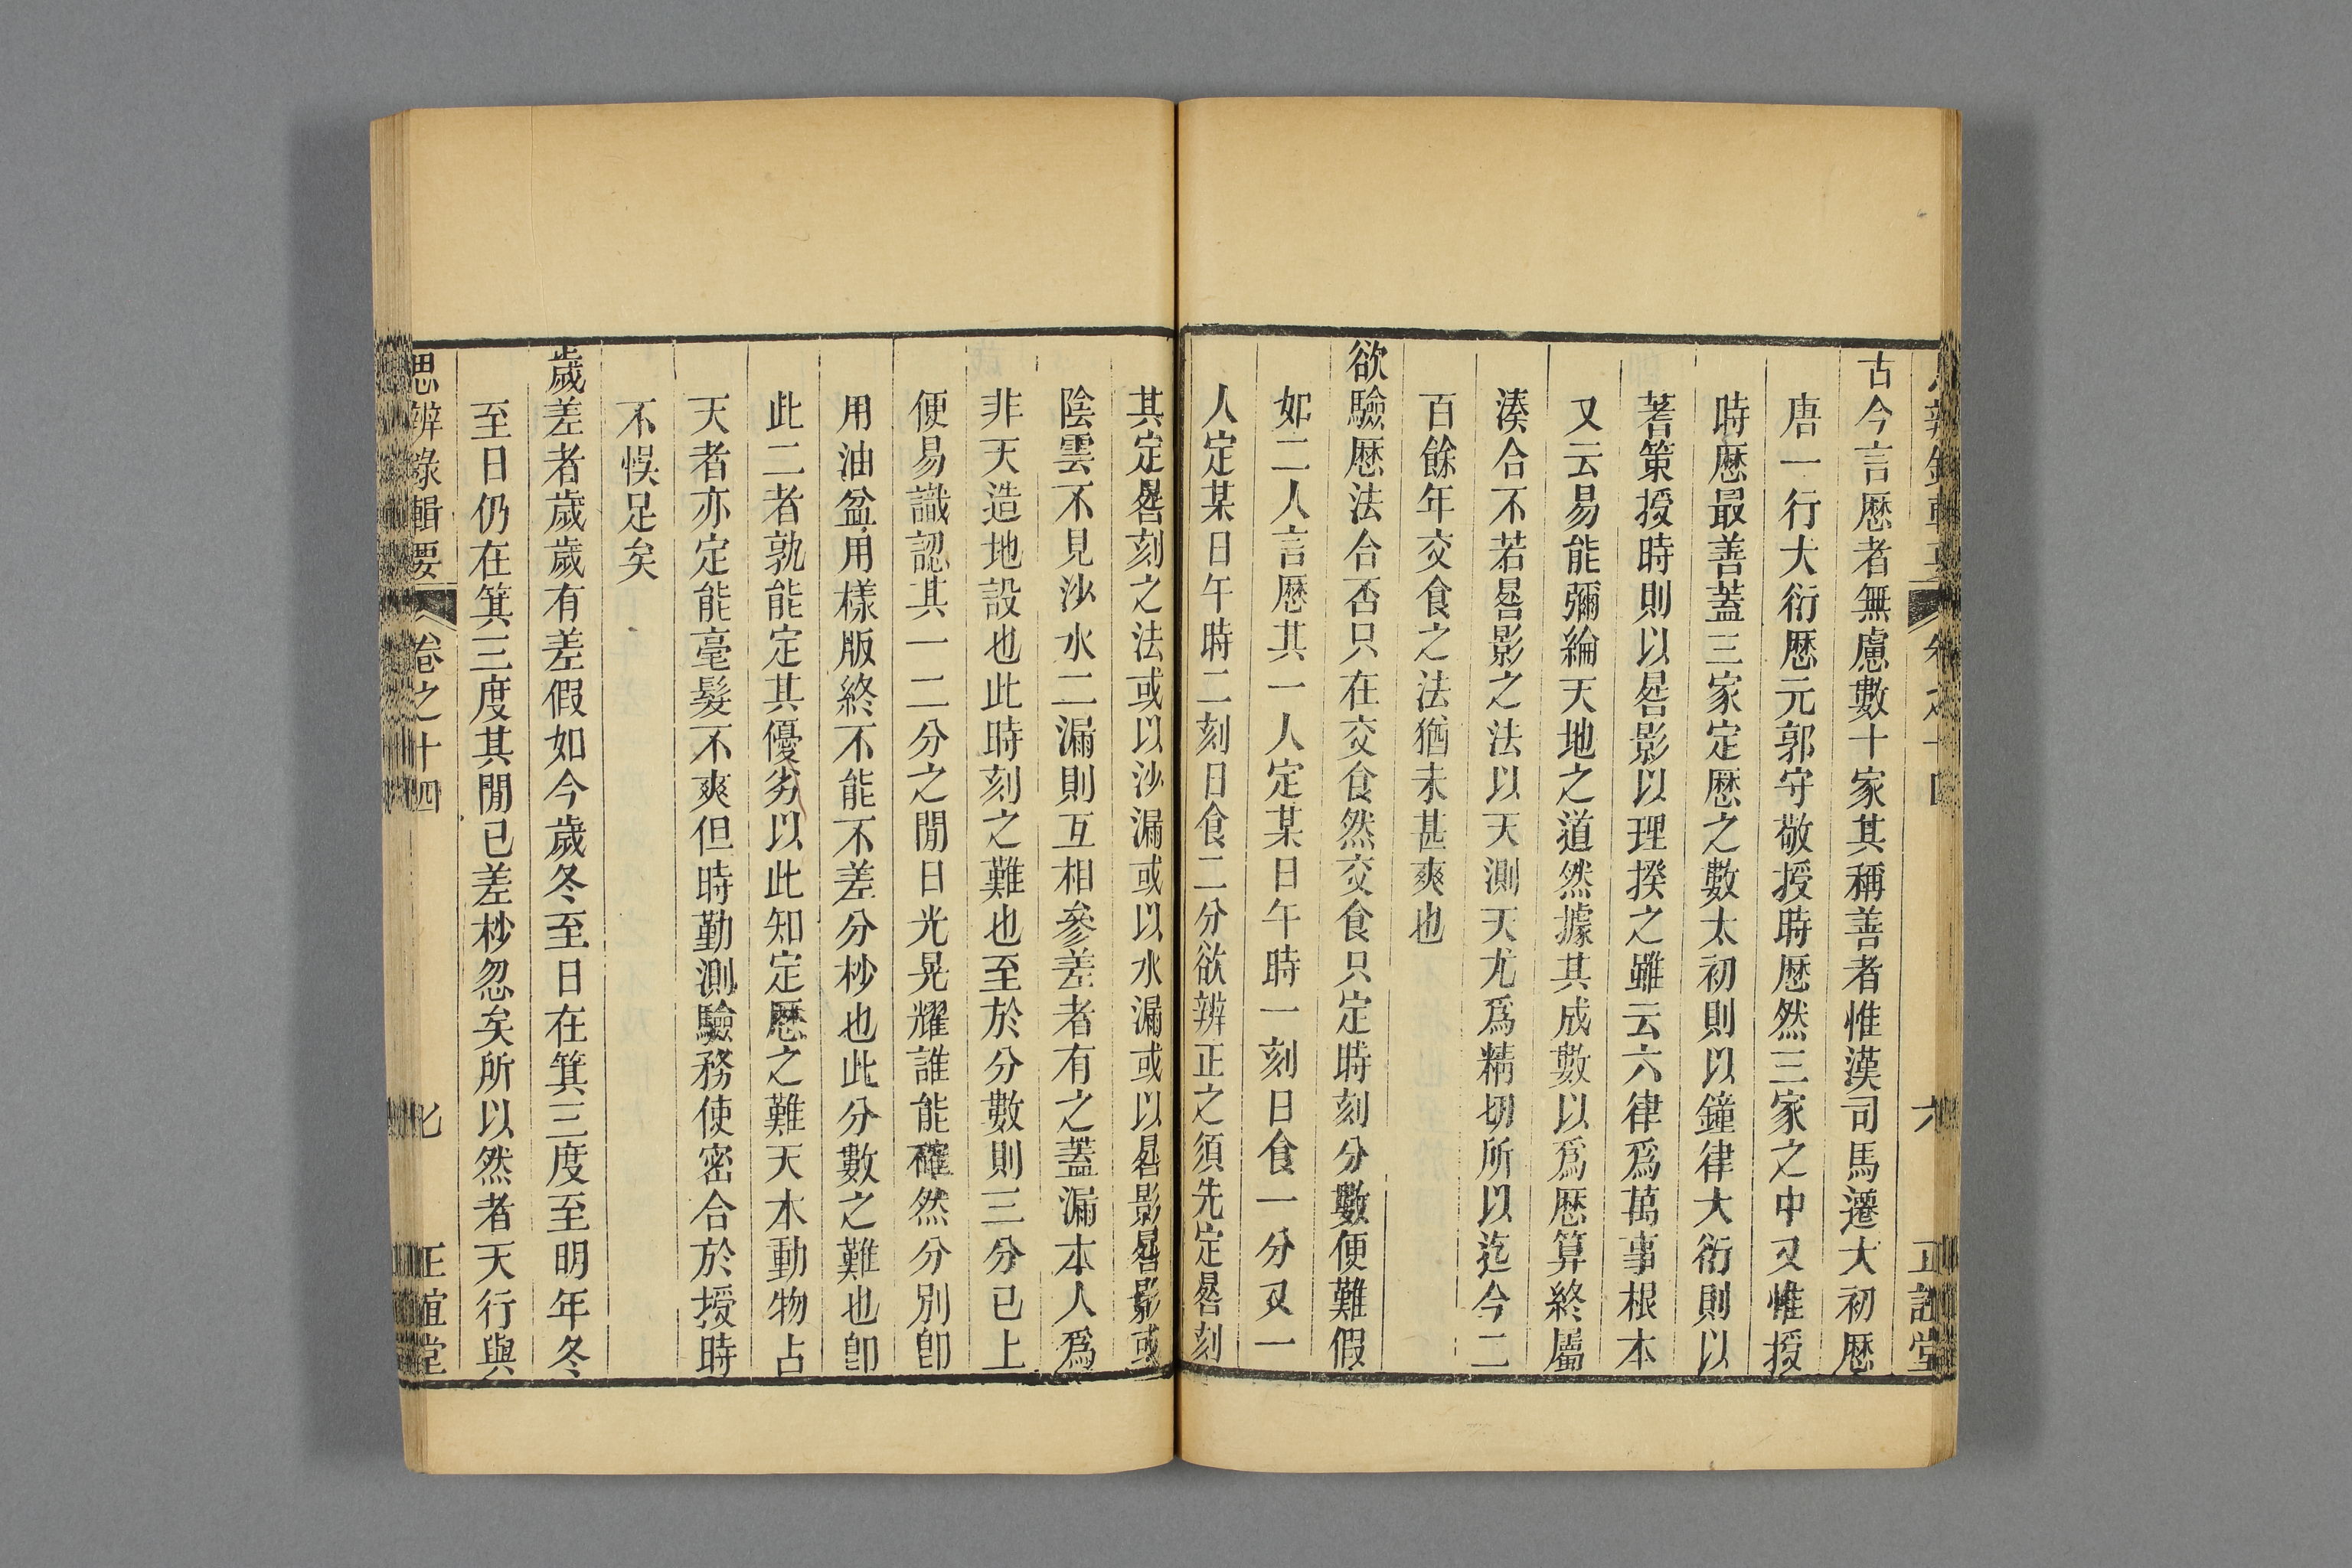 古今言厯者無慮數十家其稱善者惟漢司馬遷大初厯
唐一行大衍厯元郭守敬授時厯然三家之中又惟授
時厯最善蓋三家定厯之數太初則以鐘律大衍則以
蓍策授時則以晷影以理揆之雖云六律爲萬事根本
又云易能彌綸天地之道然據其成數以爲厯算終屬
湊合不若晷影之法以天測天尤爲精切所以迄今二
百餘年交食之法猶未甚爽也
欲驗厯法合否只在交食然交食只定時刻分數便難假
如二人言厯其一人定某日午時一刻日食一分又一
人定某日午時二刻日食二分欲辨正之須先定晷刻
其定晷刻之法或以沙漏或以水漏或以晷影晷影或
陰雲不見沙水二漏則互相參差者有之蓋漏本人爲
非天造地設也此時刻之難也至於分數則三分已上
便易識認其一二分之閒日光晃耀誰能確然分別卽
用油盆用樣版終不能不差分杪也此分數之難也卽
此二者孰能定其優劣以此知定厯之難天本動物占
天者亦定能毫髮不爽但時勤測驗務使密合於授時
不悞足矣
歲差者歲歲有差假如今歲冬至日在箕三度至明年冬
至日仍在箕三度其閒已差杪忽矣所以然者天行與
思辨錄輯要 卷之十四 七 正誼堂